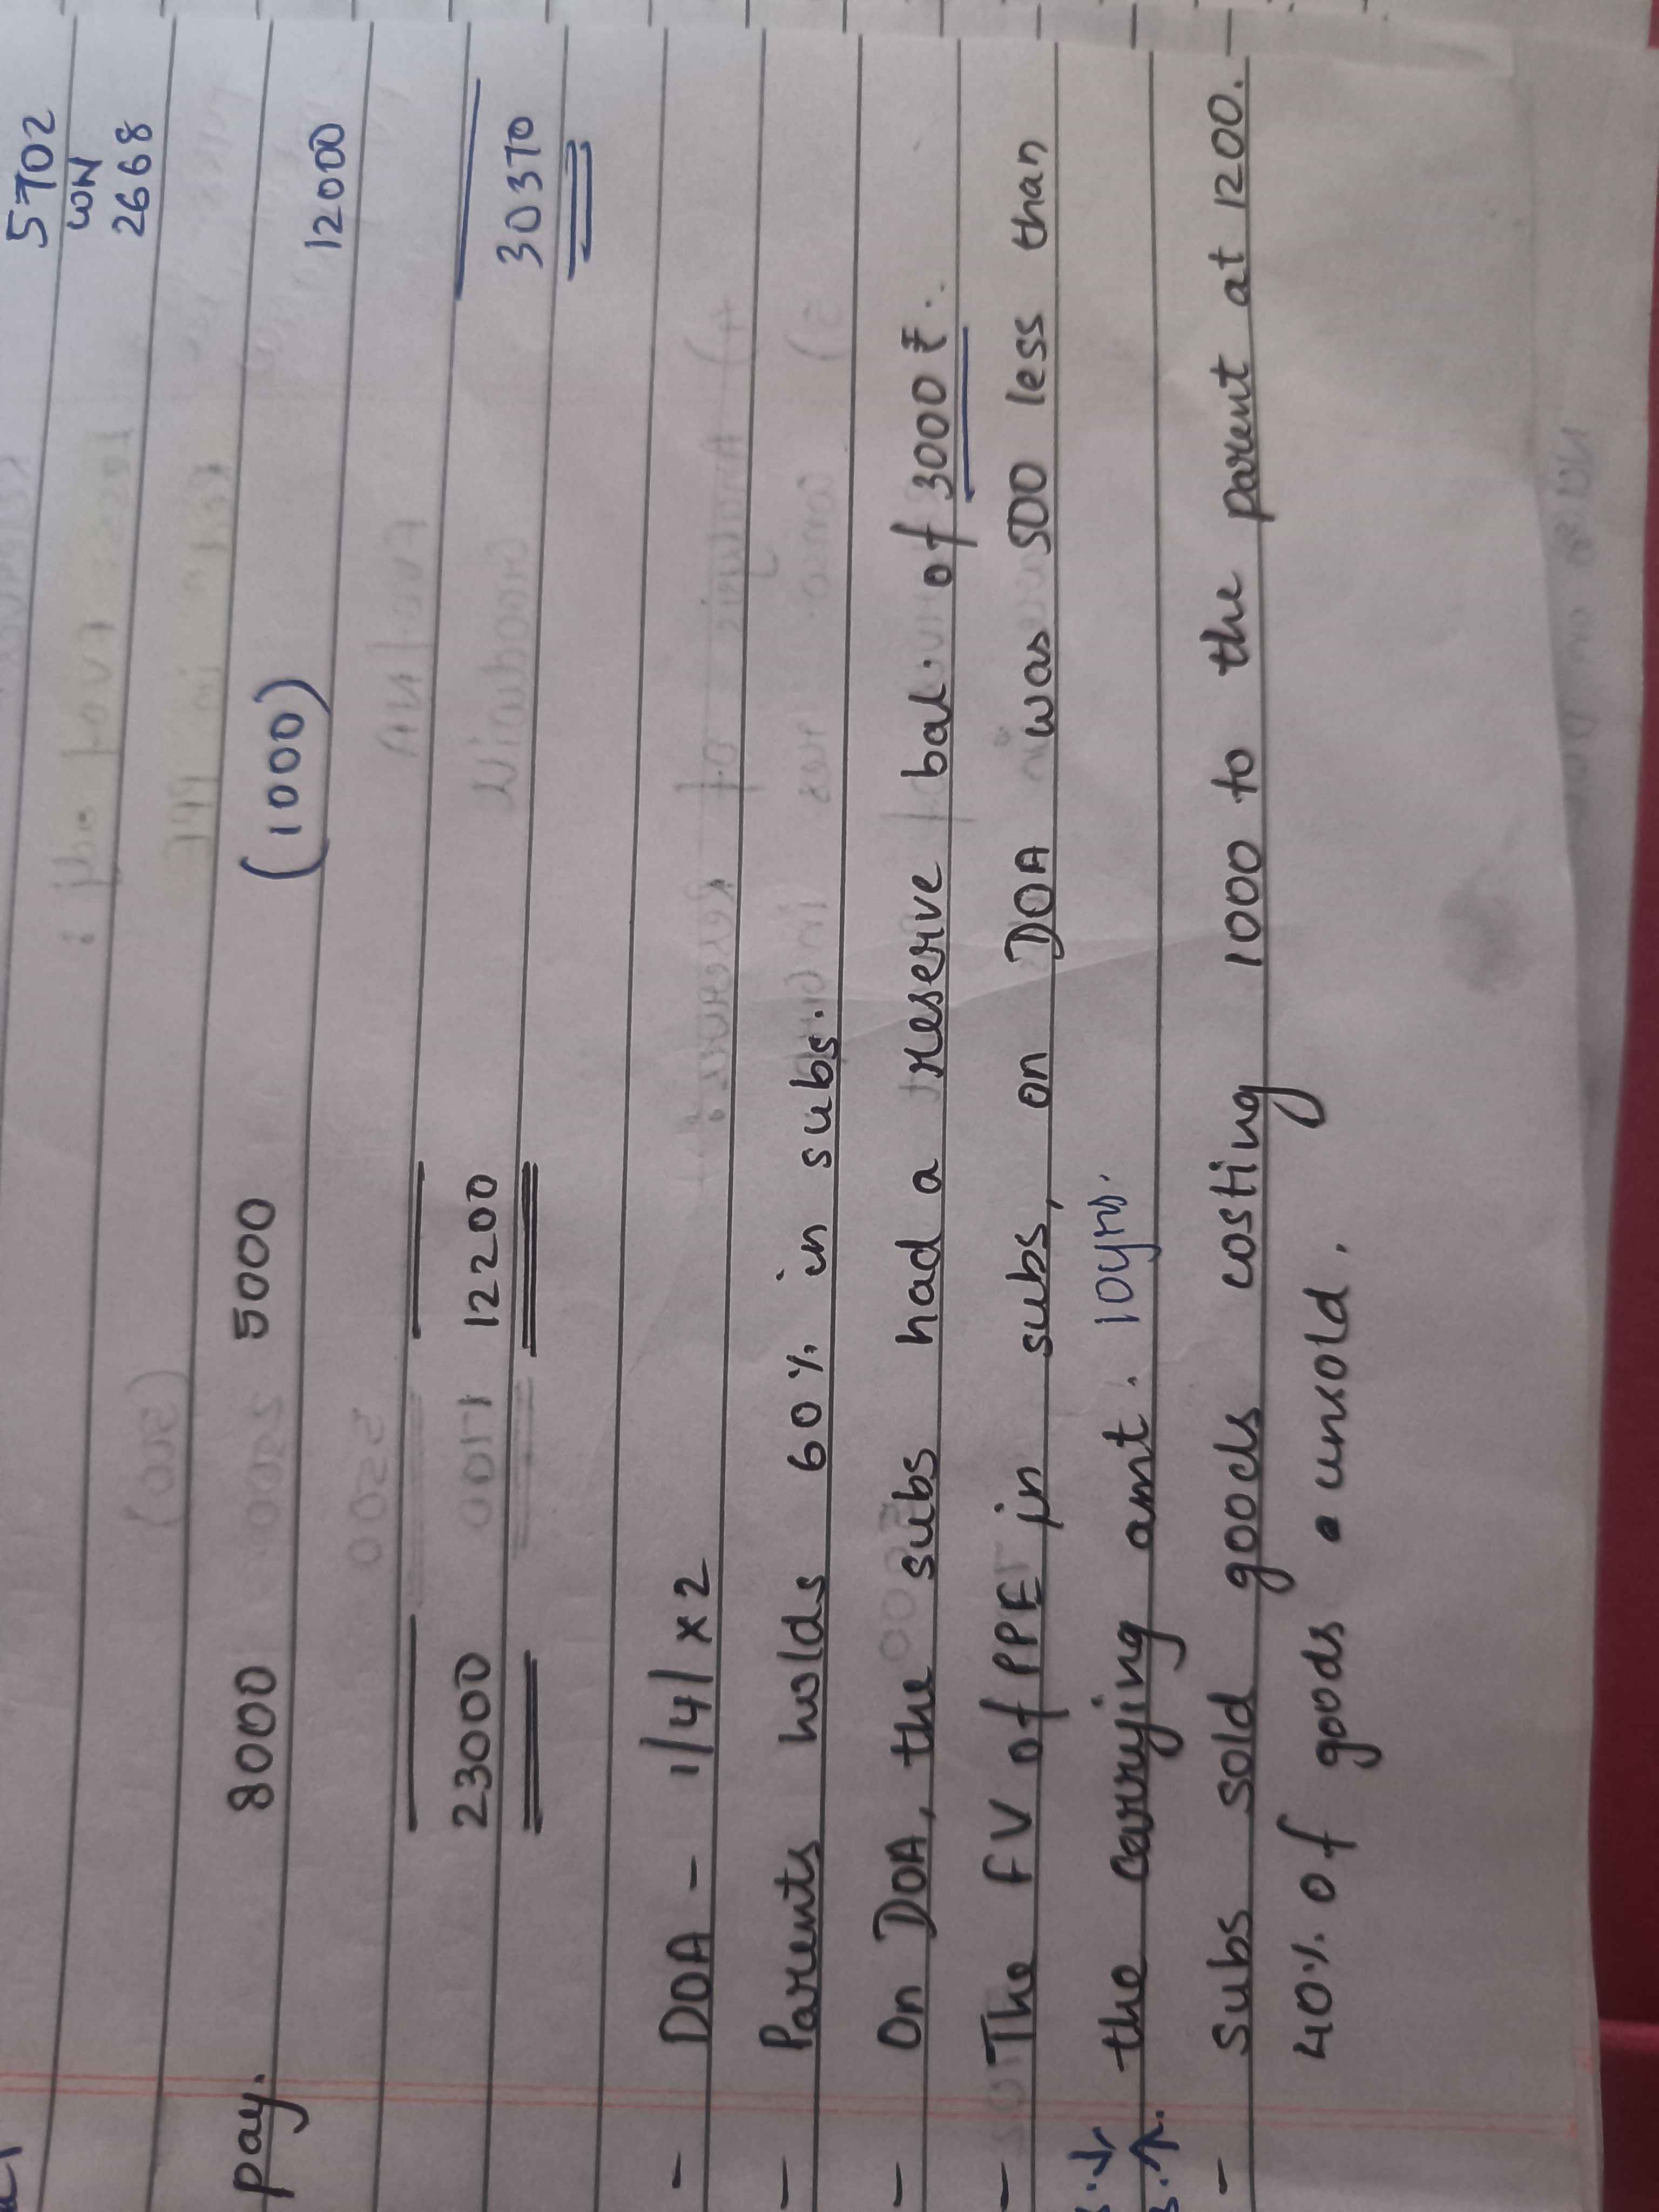 5702
WN
2668
pay. 8000 5000 (1000) 12000
23000 12200 30370
- DOA - 1/4/x2
- Parents holds 60% in subs.
- On DOA, the subs had a reserve bal. of 3000 ₹.
- The FV of PPE in subs, on DOA was 500 less than
the carrying amt. 10yrs.
- Subs sold goods costing 1000 to the parent at 1200.
40% of goods unsold.